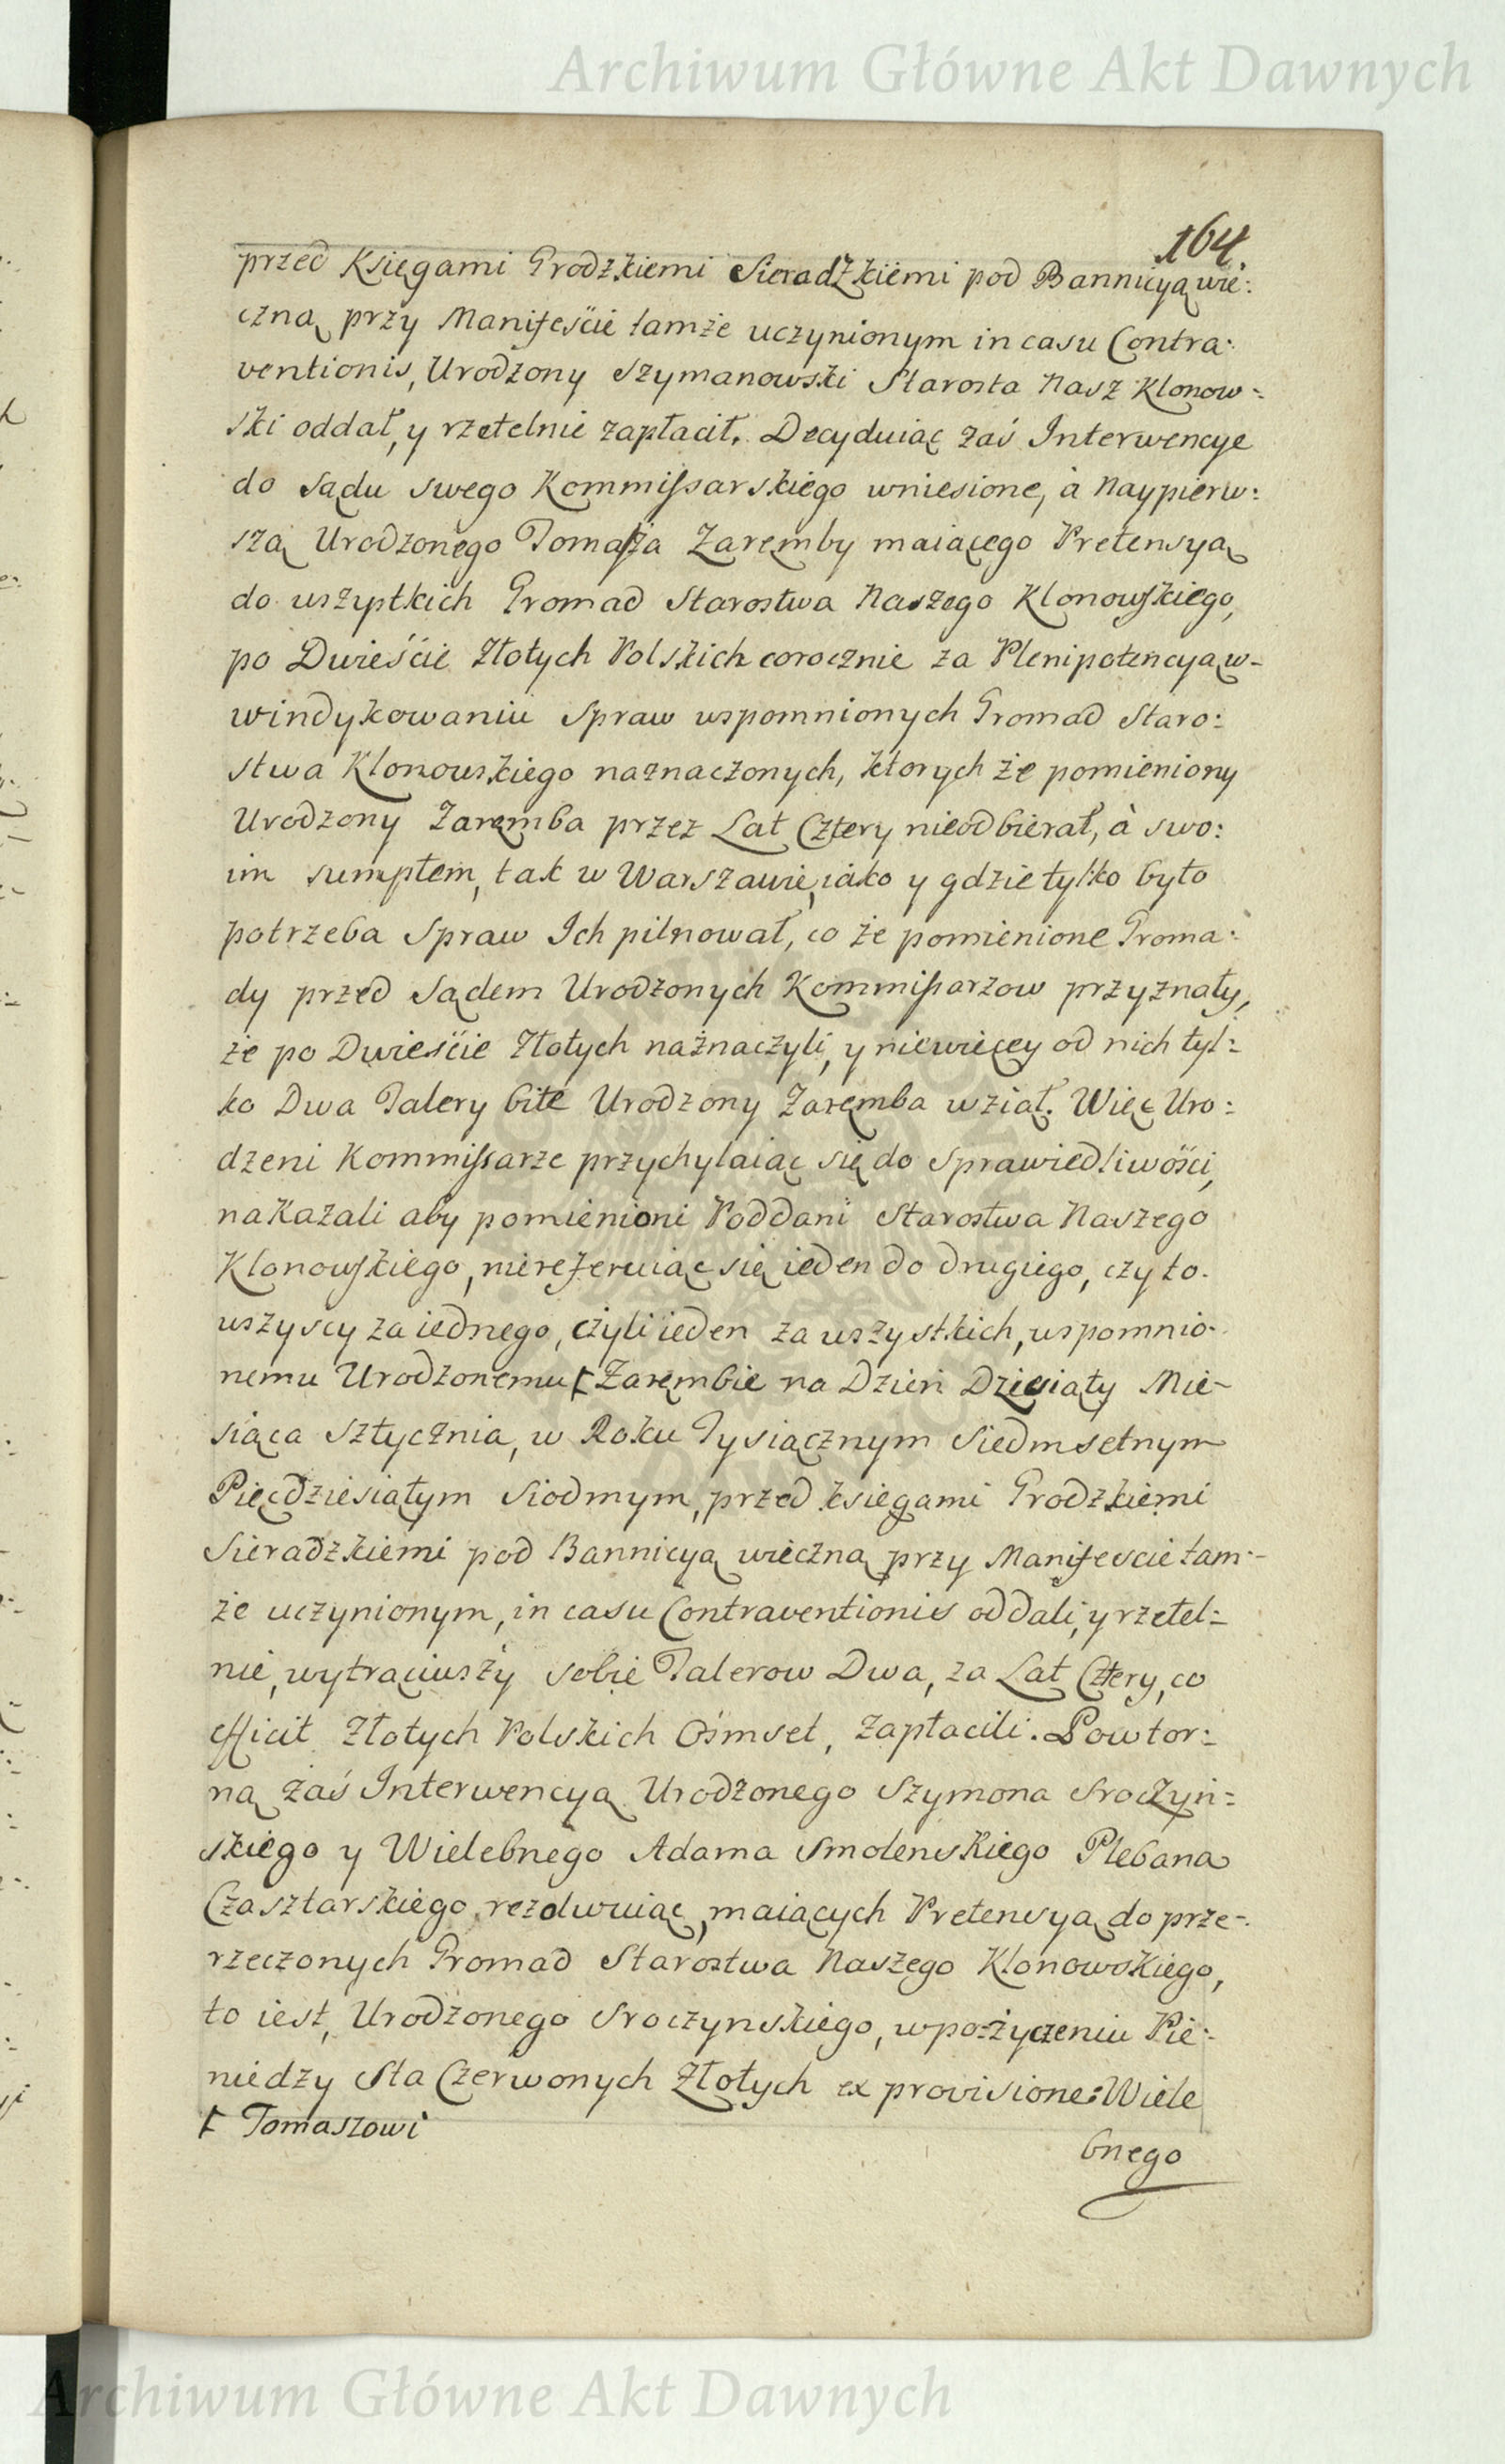 Archiwum Główne Akt Dawnych
164.
przed Księgami Grodzkiemi Sieradzkiemi pod Bannicyą wie:
czną przy Manifeście tamże uczynionym in casu Contra:
ventionis, Urodzony Szymanowski Starosta Nasz Klonow:
ski oddał, y rzetelnie zapłacił. Decyduiąc zaś Interwencye
do Sądu swego Kommissarskiego wniesione, à Naypierw:
szą Urodzonego Tomasza Zaremby maiącego Pretensyą
do wszystkich Gromad Starostwa Naszego Klonowskiego,
po Dwieście Złotych Polskich corocznie za Plenipotencyą w-
windykowaniu Spraw wspomnionych Gromad Staro:
stwa Klonowskiego naznaczonych, ktorych że pomieniony
Urodzony Zaręmba przez Lat Cztery nieodbierał, à swo:
im sumptem, tak w Warszawie, iako y gdzie tylko było
potrzeba Spraw Ich pilnował, co że pomienione Groma:
dy przed Sądem Urodzonych Kommissarzow przyznały,
że po Dwieście Złotych naznaczyli, y niewięcey od nich tyl:
ko Dwa Talery bite Urodzony Zaręmba wziął. Więc Uro:
dzeni Kommissarze przychylaiąc się do Sprawiedliwości,
nakazali aby pomienioni Poddani Starostwa Naszego
Klonowskiego, niereferuiąc się ieden do drugiego, czy to
wszyscy za iednego, czyli ieden za wszystkich, wspomnio:
nemu Urodzonemu Ⱶ Zarembie na Dzień Dziesiąty Mie-
siąca Sztycznia, w Roku Tysiącznym Siedmsetnym
Pięćdziesiątym Siodmym, przed księgami Grodzkiemi
Sieradzkiemi pod Bannicyą wieczną przy Manifescie tam:
że uczynionym, in casu Contraventionis oddali, y rzetel:
nie, wytrąciwszy sobie Talerow Dwa, za Lat Cztery, co
efficit Złotych Polskich Ośmset, zapłacili. Powtor:
ną zaś Interwencyą Urodzonego Szymona Sroczyń:
skiego y Wielebnego Adama Smolenskiego Plebana
Czasztarskiego rezolwuiąc, maiących Pretensyą do prze:
rzeczonych Gromad Starostwa Naszego Klonowskiego,
to iest, Urodzonego Sroczynskiego, w pożyczeniu Pie:
niedzy Sta Czerwonych Złotych ex provisione: Wiele
Ⱶ Tomaszowi
bnego
Archiwum Główne Akt Dawnych